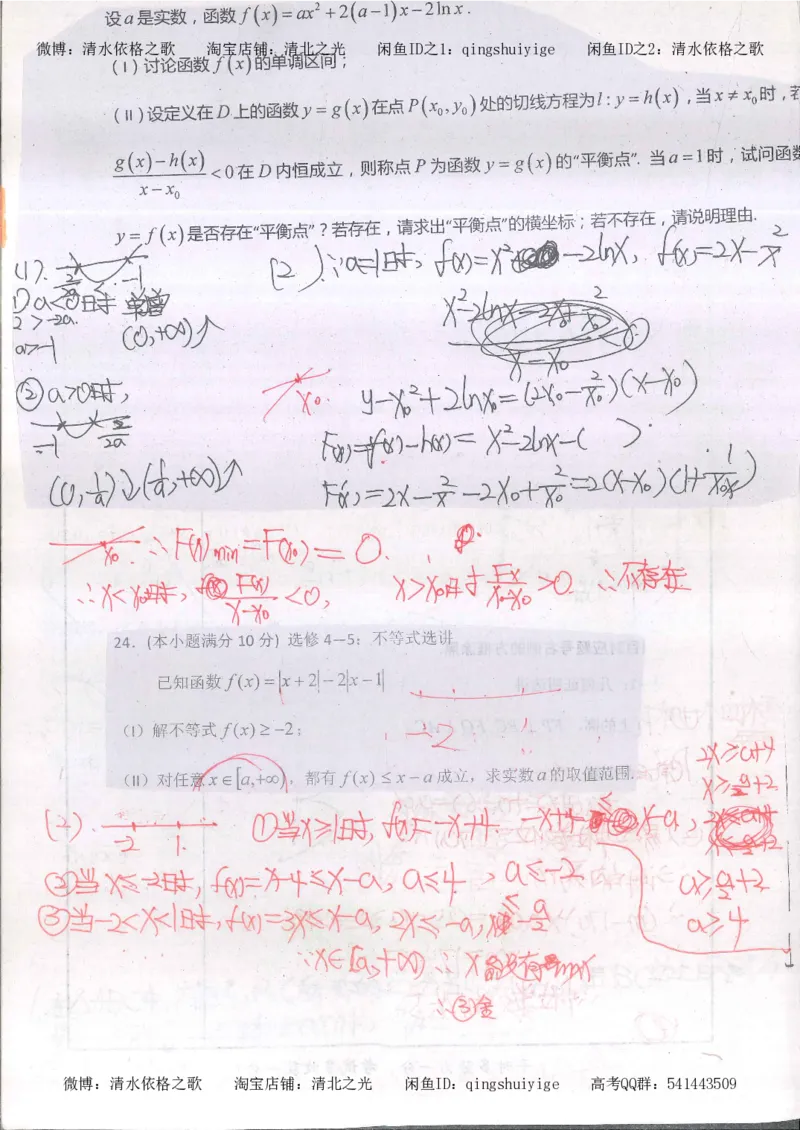 设a是实数，函数f(x)=ax²+2(a-1)x-2lnx.
微博：清水依格之歌 淘宝店铺：清北之光 闲鱼ID之1：qingshuiyige 闲鱼ID之2：清水依格之歌
(I)讨论函数f(x)的单调区间；
(II)设定义在D上的函数y=g(x)在点P(x₀,y₀)处的切线方程为l:y=h(x)，当x≠x₀时，若
(g(x)-h(x))/(x-x₀)<0在D内恒成立，则称点P为函数y=g(x)的“平衡点”. 当a=1时，试问函数
y=f(x)是否存在“平衡点”？若存在，请求出“平衡点”的横坐标；若不存在，请说明理由.
(1).
-1
(2) ∵a=1时，f(x)=x² -2lnx，f(x)=2x-2/x
① a<0时 单增
2>-2a
(0,+∞)↗
a>-1
② a>0时，
x₀
y-x₀²+2lnx₀=(2x₀-2/x₀)(x-x₀)
-1 2/2a
F(x)=f(x)-h(x)=x²-2lnx-( ).
(0,1/a)↘(1/a,+∞)↗
F(x)=2x-2/x-2x₀+2/x₀=2(x-x₀)(1+1/x₀x)
x₀ ∴F(x)min=F(x₀)=0.
∴x<x₀时，F(x)/(x-x₀)<0，x>x₀时 >0 ∴不存在
24．(本小题满分10分) 选修4—5：不等式选讲
已知函数f(x)=|x+2|-2|x-1|
(I) 解不等式f(x)≥-2；
-2 1
(II) 对任意x∈[a,+∞)，都有f(x)≤x-a成立，求实数a的取值范围.
2x≥a+4
x≥a/2+2
(2). -2 1 ①当x≥1时，f(x)=-x+4. -x+4≤x-a，
②当x≤-2时，f(x)=x-4≤x-a，a≤4，a≤-2
a≥a/2+2
③当-2<x<1时，f(x)=3x≤x-a，2x≤-a，x≤-a/2
a≥4
∵x∈[a,+∞) ∴x 没有max
∴③舍
微博：清水依格之歌 淘宝店铺：清北之光 闲鱼ID：qingshuiyige 高考QQ群：541443509